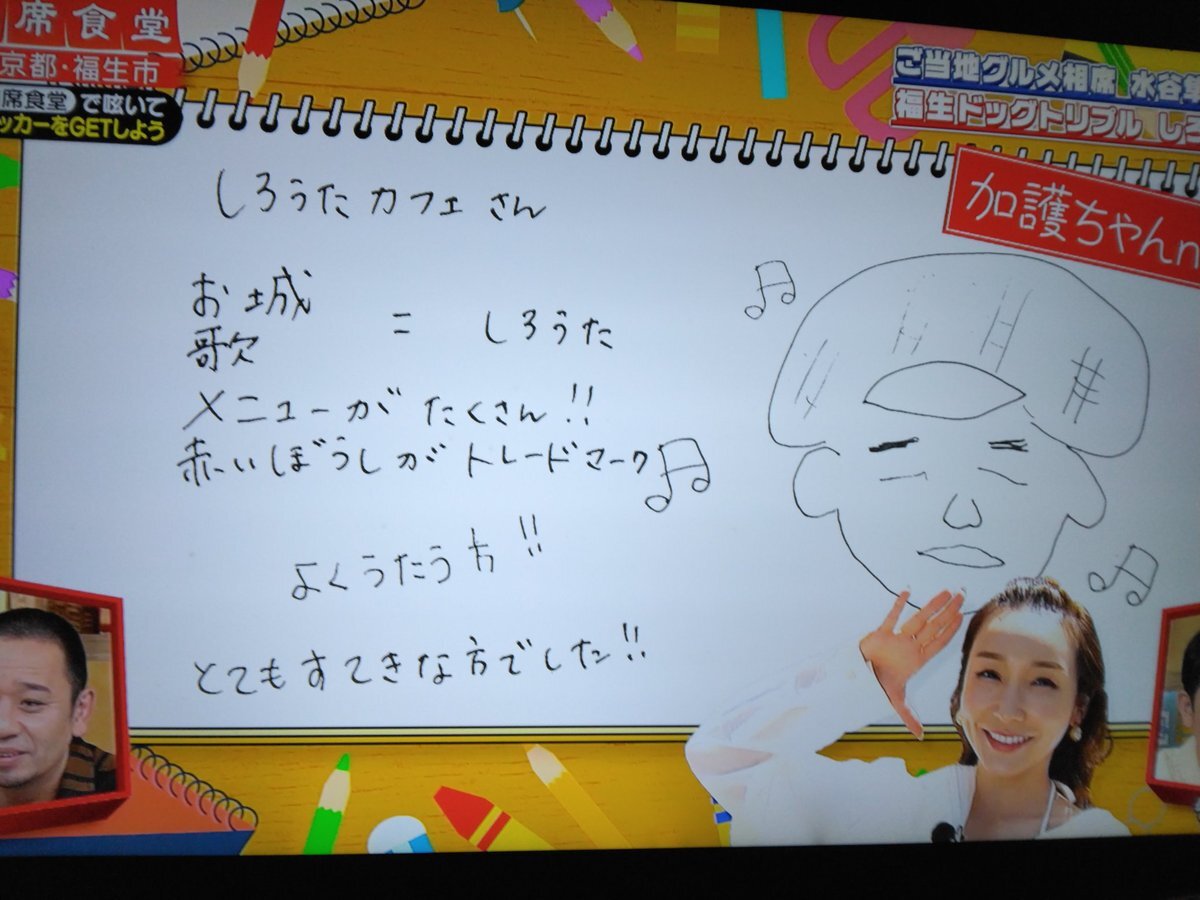 席食堂
京都・福生市
席食堂 で呟いて
ッカーをGETしよう
ご当地グルメ相席 水谷隼
福生ドッグトリプル しろ
加護ちゃんn
しろうたカフェさん
お城
歌
= しろうた
メニューがたくさん!!
赤いぼうしがトレードマーク
よくうたう方!!
とてもすてきな方でした!!